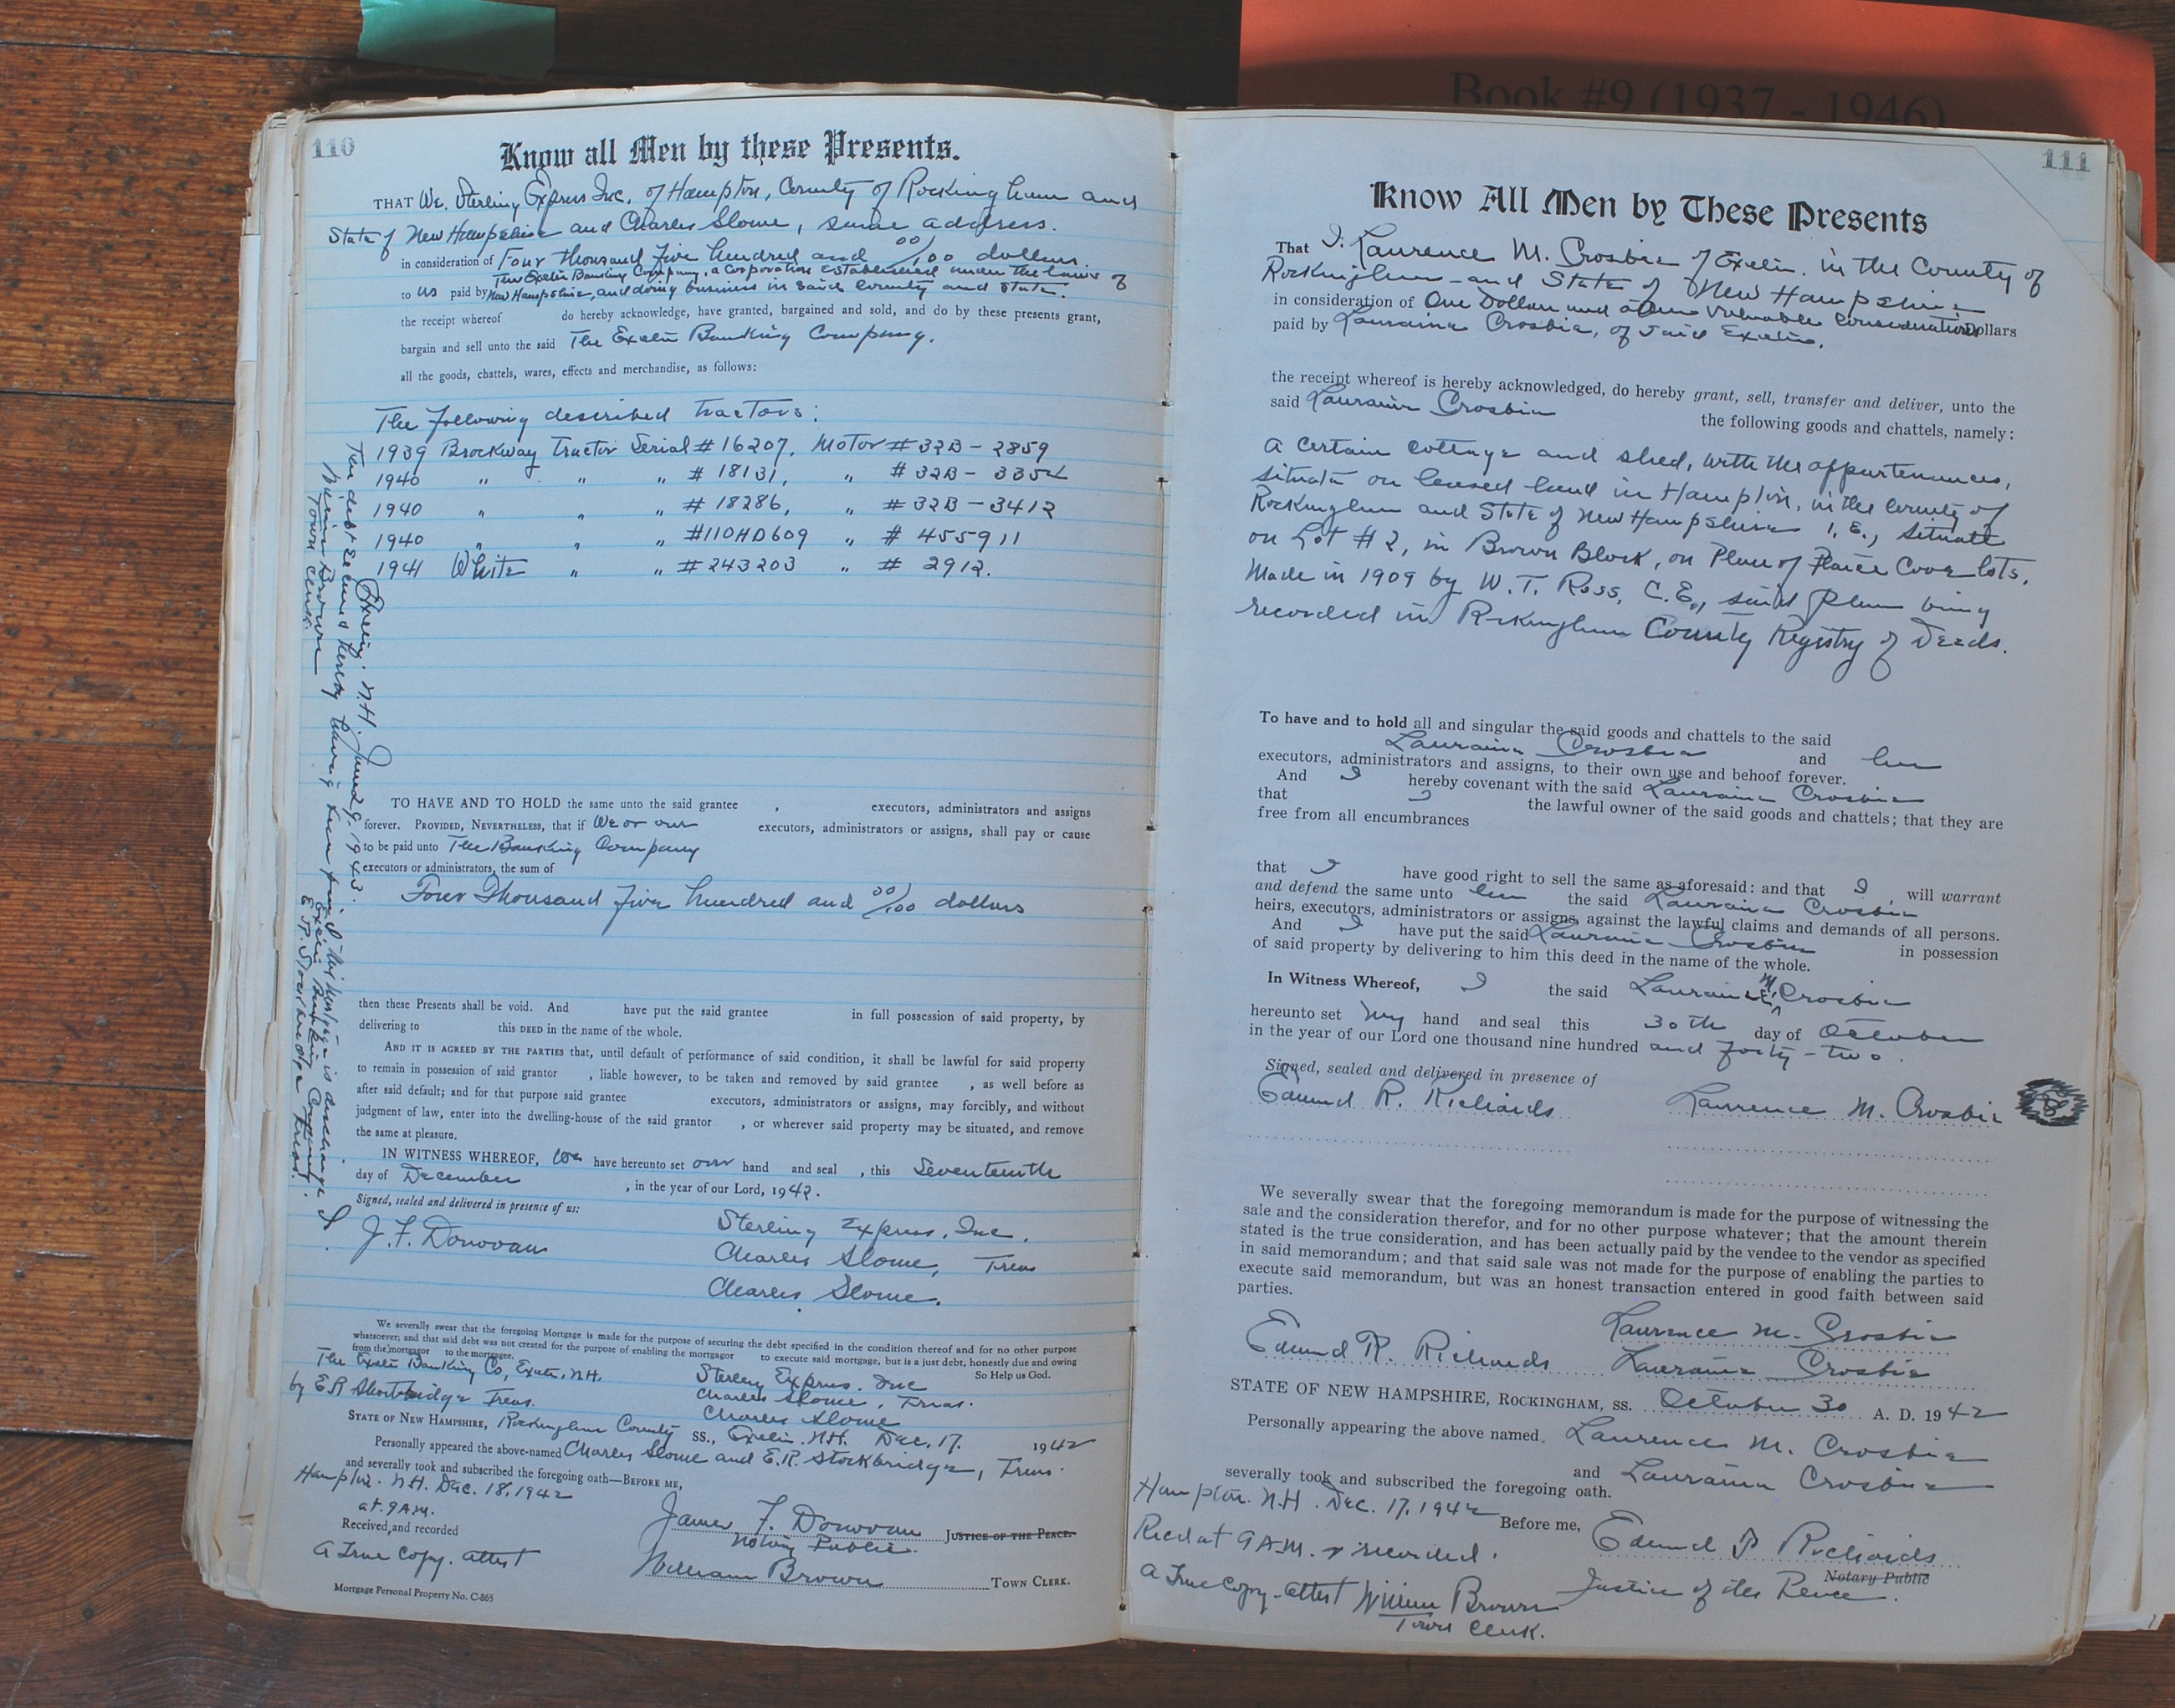 Book #9 (1937 - 1946)
110
Know all Men by these Presents.
THAT We, Sterling Express Inc. of Hampton, County of Rockingham and
State of New Hampshire and Charles Slome, same address.
in consideration of Four Thousand Five hundred and 00/100 dollars
The Exeter Banking Company, a corporation established under the laws of
to us paid by New Hampshire, and doing business in said County and State.
the receipt whereof do hereby acknowledge, have granted, bargained and sold, and do by these presents grant,
bargain and sell unto the said The Exeter Banking Company.
all the goods, chattels, wares, effects and merchandise, as follows:
The following described tractors:
1939 Brockway Tractor Serial # 16207, Motor # 32B - 2859
1940 " " " # 18131, " # 32B - 3354
1940 " " " # 18286, " # 32B - 3412
1940 " " " #110HD609 " # 455911
1941 White " " # 243203 " # 2912.
TO HAVE AND TO HOLD the same unto the said grantee , executors, administrators and assigns
forever. PROVIDED, NEVERTHELESS, that if We or our executors, administrators or assigns, shall pay or cause
to be paid unto The Banking Company
executors or administrators, the sum of
Four Thousand five hundred and 00/100 dollars
then these Presents shall be void. And have put the said grantee in full possession of said property, by
delivering to this DEED in the name of the whole.
AND IT IS AGREED BY THE PARTIES that, until default of performance of said condition, it shall be lawful for said property
to remain in possession of said grantor , liable however, to be taken and removed by said grantee , as well before as
after said default; and for that purpose said grantee executors, administrators or assigns, may forcibly, and without
judgment of law, enter into the dwelling-house of the said grantor , or wherever said property may be situated, and remove
the same at pleasure.
IN WITNESS WHEREOF, We have hereunto set our hand and seal , this Seventeenth
day of December , in the year of our Lord, 1942.
Signed, sealed and delivered in presence of us:
J. F. Donovan
Sterling Express, Inc.
Charles Slome, Treas
Charles Slome.
We severally swear that the foregoing Mortgage is made for the purpose of securing the debt specified in the condition thereof and for no other purpose
whatsoever; and that said debt was not created for the purpose of enabling the mortgagor to execute said mortgage, but is a just debt, honestly due and owing
from the mortgagor to the mortgagee. So Help us God.
The Exeter Banking Co, Exeter, N.H.
by E.R. Stockbridge Treas.
Sterling Express. Inc
Charles Slome, Treas.
Charles Slome
STATE OF NEW HAMPSHIRE, Rockingham County ss., Exeter, N.H. Dec. 17. 1942
Personally appeared the above-named Charles Slome and E.R. Stockbridge, Treas.
and severally took and subscribed the foregoing oath—BEFORE ME,
Hampton. N.H. Dec. 18, 1942
at 9 A.M.
Received, and recorded
James F. Donovan JUSTICE OF THE PEACE.
Notary Public.
A True Copy. attest
William Brown TOWN CLERK.
Mortgage Personal Property No. C-865
Exeter, N.H. June 9. 1943.
The debt secured hereby having been paid this mortgage is discharged.
Exeter Banking Company
E. R. Stockbridge Treas.
William Brown
Town Clerk.
111
Know All Men by These Presents
That I, Laurence M. Crosbie of Exeter, in the County of
Rockingham and State of New Hampshire
in consideration of One Dollar and other valuable considerations Dollars
paid by Lauraine Crosbie, of said Exeter,
the receipt whereof is hereby acknowledged, do hereby grant, sell, transfer and deliver, unto the
said Lauraine Crosbie the following goods and chattels, namely:
A certain cottage and shed, with the appurtenances,
situate on leased land in Hampton, in the County of
Rockingham and State of New Hampshire i, e., situate
on Lot # 2, in Brown Block, on Plan of Plaice Cove lots,
Made in 1909 by W. T. Ross, C. E., said plan being
recorded in Rockingham County Registry of Deeds.
To have and to hold all and singular the said goods and chattels to the said
Lauraine Crosbie and her
executors, administrators and assigns, to their own use and behoof forever.
And I hereby covenant with the said Lauraine Crosbie
that I the lawful owner of the said goods and chattels; that they are
free from all encumbrances
that I have good right to sell the same as aforesaid: and that I , will warrant
and defend the same unto her the said Lauraine Crosbie
heirs, executors, administrators or assigns, against the lawful claims and demands of all persons.
And I have put the said Lauraine Crosbie in possession
of said property by delivering to him this deed in the name of the whole.
In Witness Whereof, I the said Laurence M. Crosbie
hereunto set my hand and seal this 30th day of October
in the year of our Lord one thousand nine hundred and forty-two.
Signed, sealed and delivered in presence of
Edmund R. Richards Laurence M. Crosbie
We severally swear that the foregoing memorandum is made for the purpose of witnessing the
sale and the consideration therefor, and for no other purpose whatever; that the amount therein
stated is the true consideration, and has been actually paid by the vendee to the vendor as specified
in said memorandum; and that said sale was not made for the purpose of enabling the parties to
execute said memorandum, but was an honest transaction entered in good faith between said
parties.
Laurence M. Crosbie
Edmund R. Richards Lauraine Crosbie
STATE OF NEW HAMPSHIRE, ROCKINGHAM, SS. October 30 A. D. 1942
Personally appearing the above named Laurence M. Crosbie
and Lauraine Crosbie
severally took and subscribed the foregoing oath.
Hampton. N.H. Dec. 17, 1942
Before me,
Recd at 9 A.M. & recorded.
Edmund R. Richards
Notary Public
Justice of the Peace.
A True Copy - attest William Brown
Town Clerk.